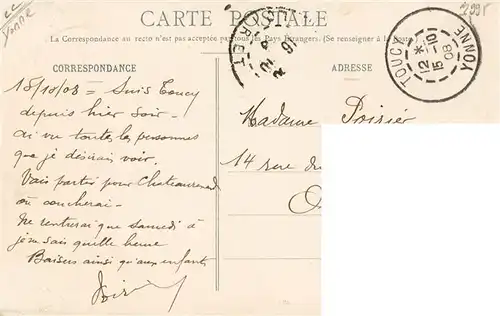 CARTE POSTALE
La Correspondance au recto n'est pas acceptée par tous les Pays Étrangers. (Se renseigner à la Poste)
CORRESPONDANCE
ADRESSE
Yonne
TOUCY YONNE
12 * 15 -10 08
15/10/08 = Suis Toucy
depuis hier soir -
ai vu toutes les personnes
que je désirais voir.
Vais partir pour Chateaurenard
où coucherai -
Ne rentrerai que samedi à
je ne sais quelle heure
Baisers ainsi qu'aux enfants
Madame Poirier
14 rue du